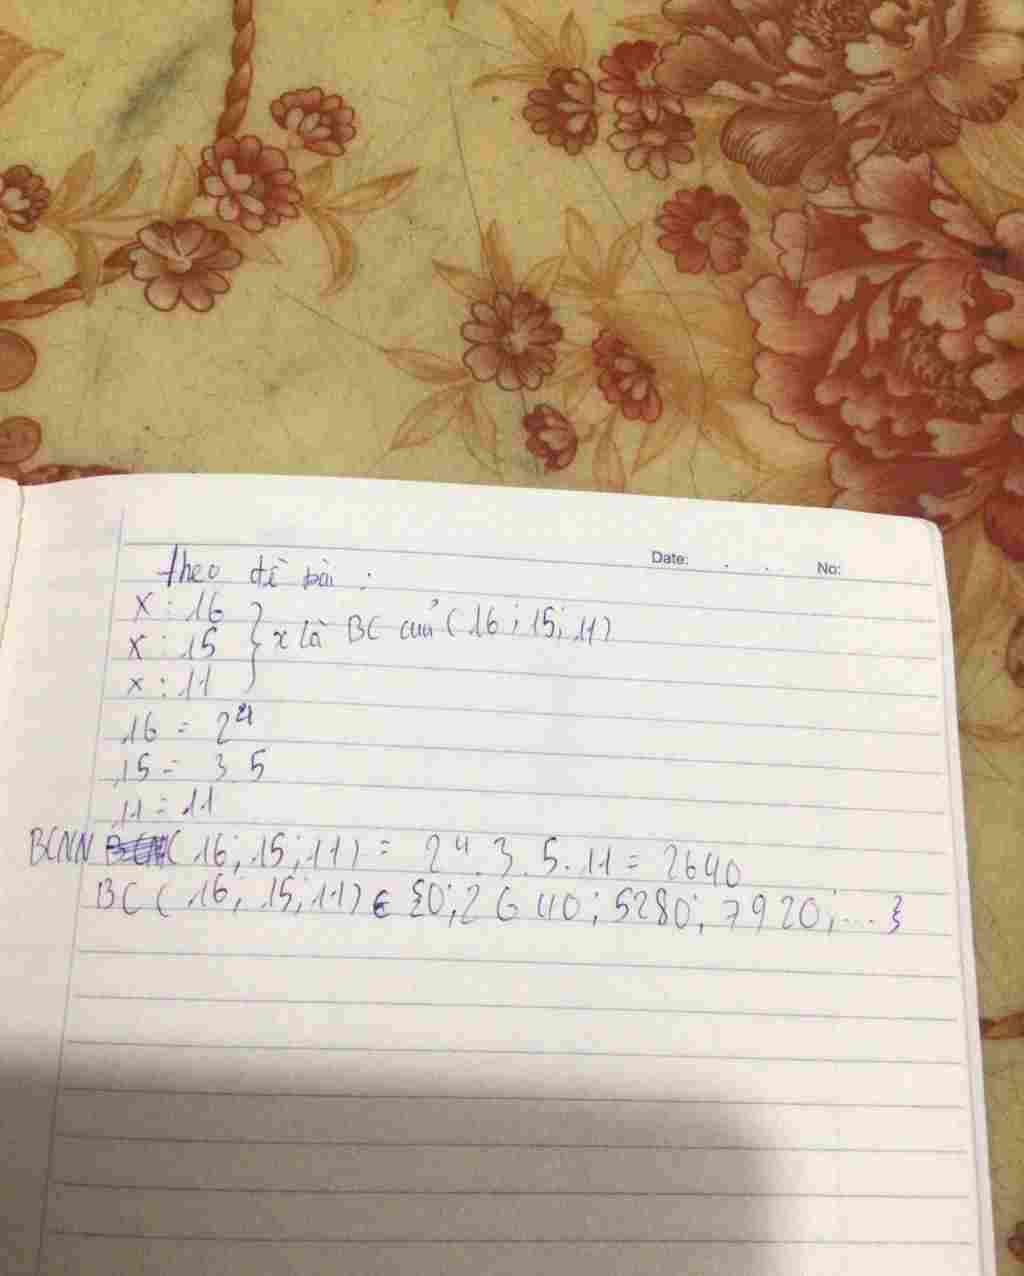 Date: . . No:
theo đề bài :
x : 16
x : 15 } x là BC của (16; 15; 11)
x : 11
16 = 2⁴
15 = 3 5
11 = 11
BCNN (16; 15; 11) = 2⁴. 3. 5. 11 = 2640
BC (16; 15; 11) ∈ {0; 2640; 5280; 7920; ... }